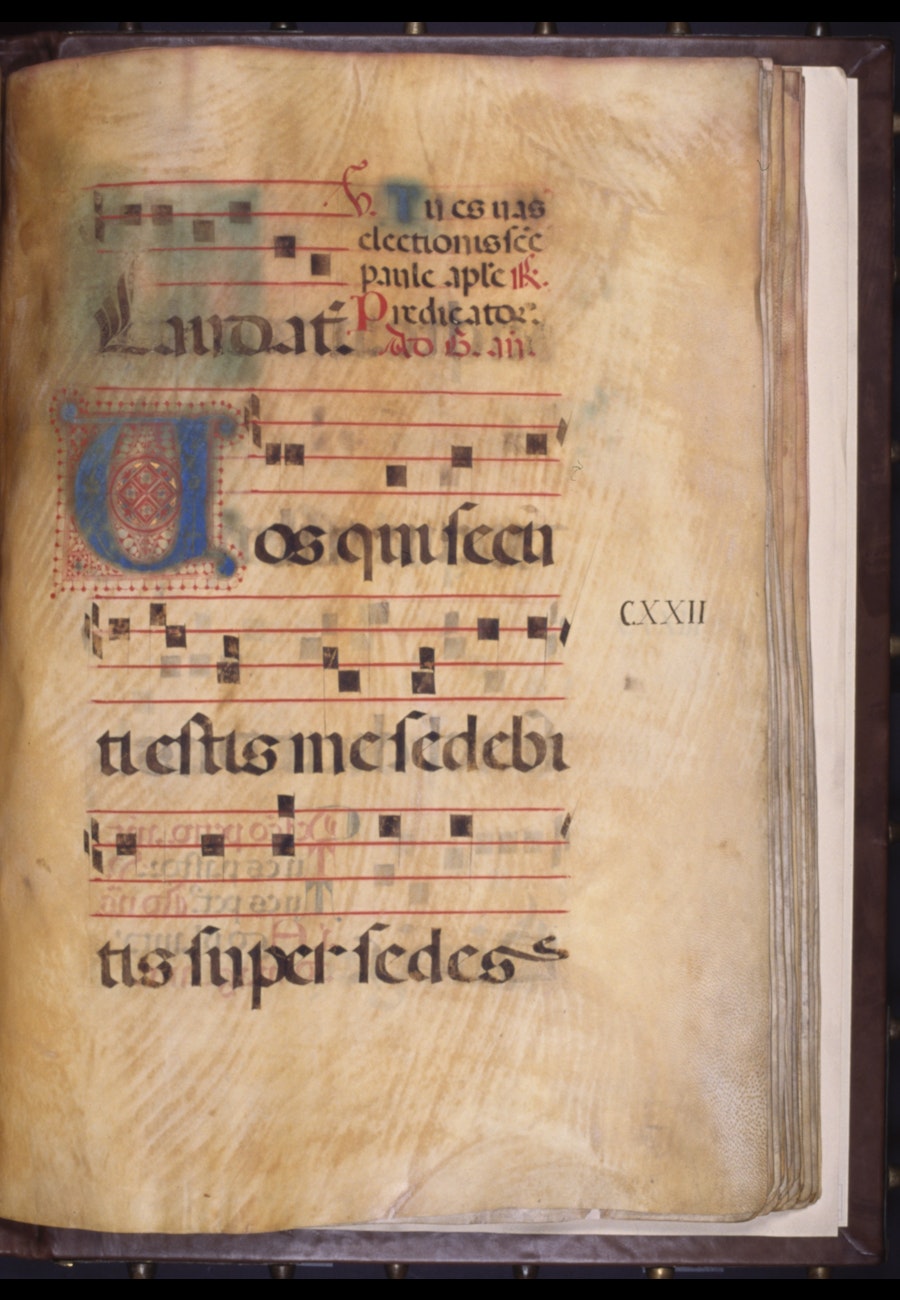 Laudat.
V. Tu es uas
electionis sc̄e
paule aple R.
Predicator.
Ad B. añ.
Uos qui secu
C.XXII
ti estis me sedebi
tis super sedes